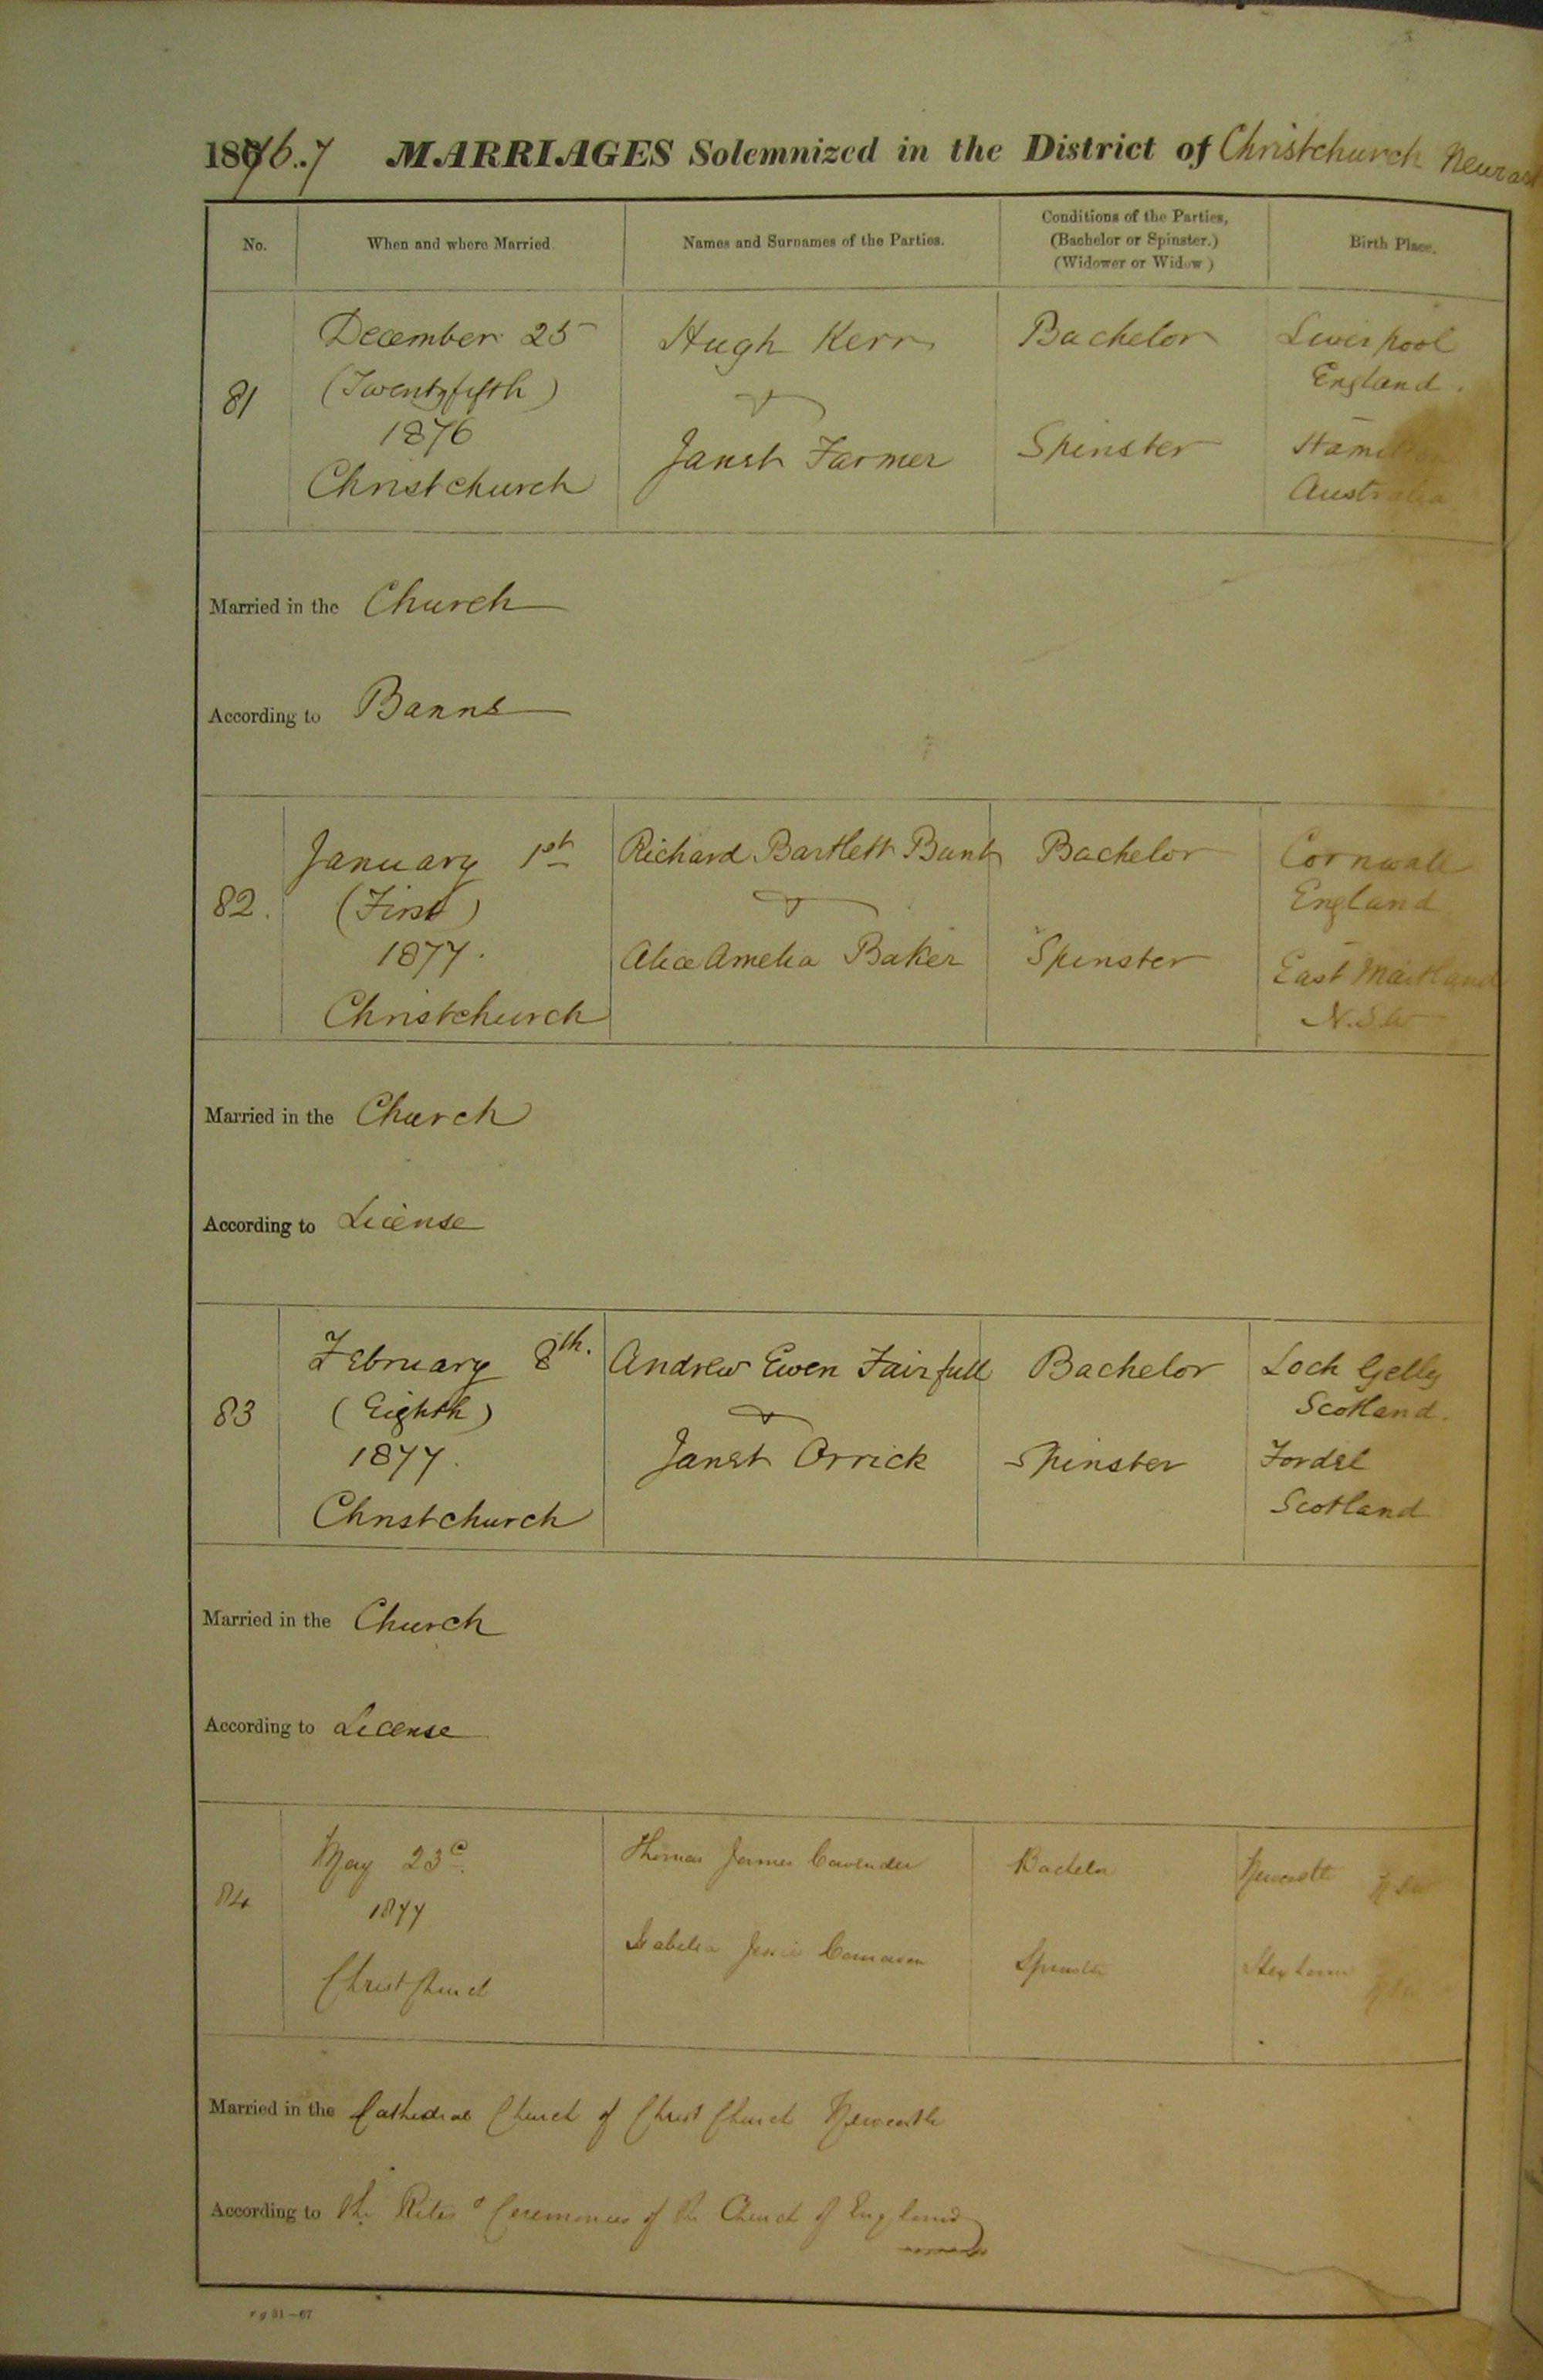 1876.7 MARRIAGES Solemnized in the District of Christchurch
No. When and where Married. Names and Surnames of the Parties. Conditions of the Parties, (Bachelor or Spinster.) (Widower or Widow) Birth Place.
81
December 25
(Twentyfifth)
1876
Christchurch
Hugh Kerr
&
Janet Farmer
Bachelor
Spinster
Liverpool
England.
Hamilton
Australia
Married in the Church
According to Banns
82.
January 1st
(First)
1877.
Christchurch
Richard Bartlett Bunt
&
Alice Amelia Baker
Bachelor
Spinster
Cornwall
England
East Maitland
N.S.W
Married in the Church
According to License
83
February 8th.
(Eighth)
1877.
Christchurch
Andrew Ewen Fairfull
&
Janet Orrick
Bachelor
Spinster
Loch Gelly
Scotland.
Fordel
Scotland
Married in the Church
According to License
84
May 23
1877
Christ Church
Thomas James Cavender
Isabella Jessie
Bachelor
Spinster
Newcastle NSW
Hexham NSW
Married in the Cathedral Church of Christ Church Newcastle
According to the Rites & Ceremonies of the Church of England